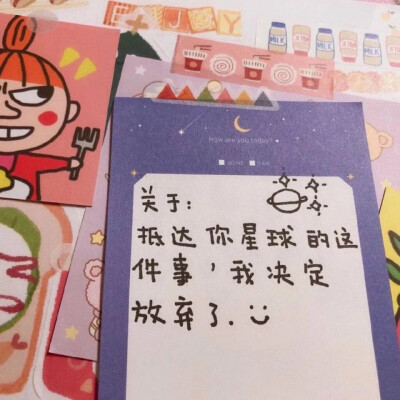 ENJOY
MILK
MILK
MILK
How are you today?
关于:
抵达你星球的这
件事，我决定
放弃了.